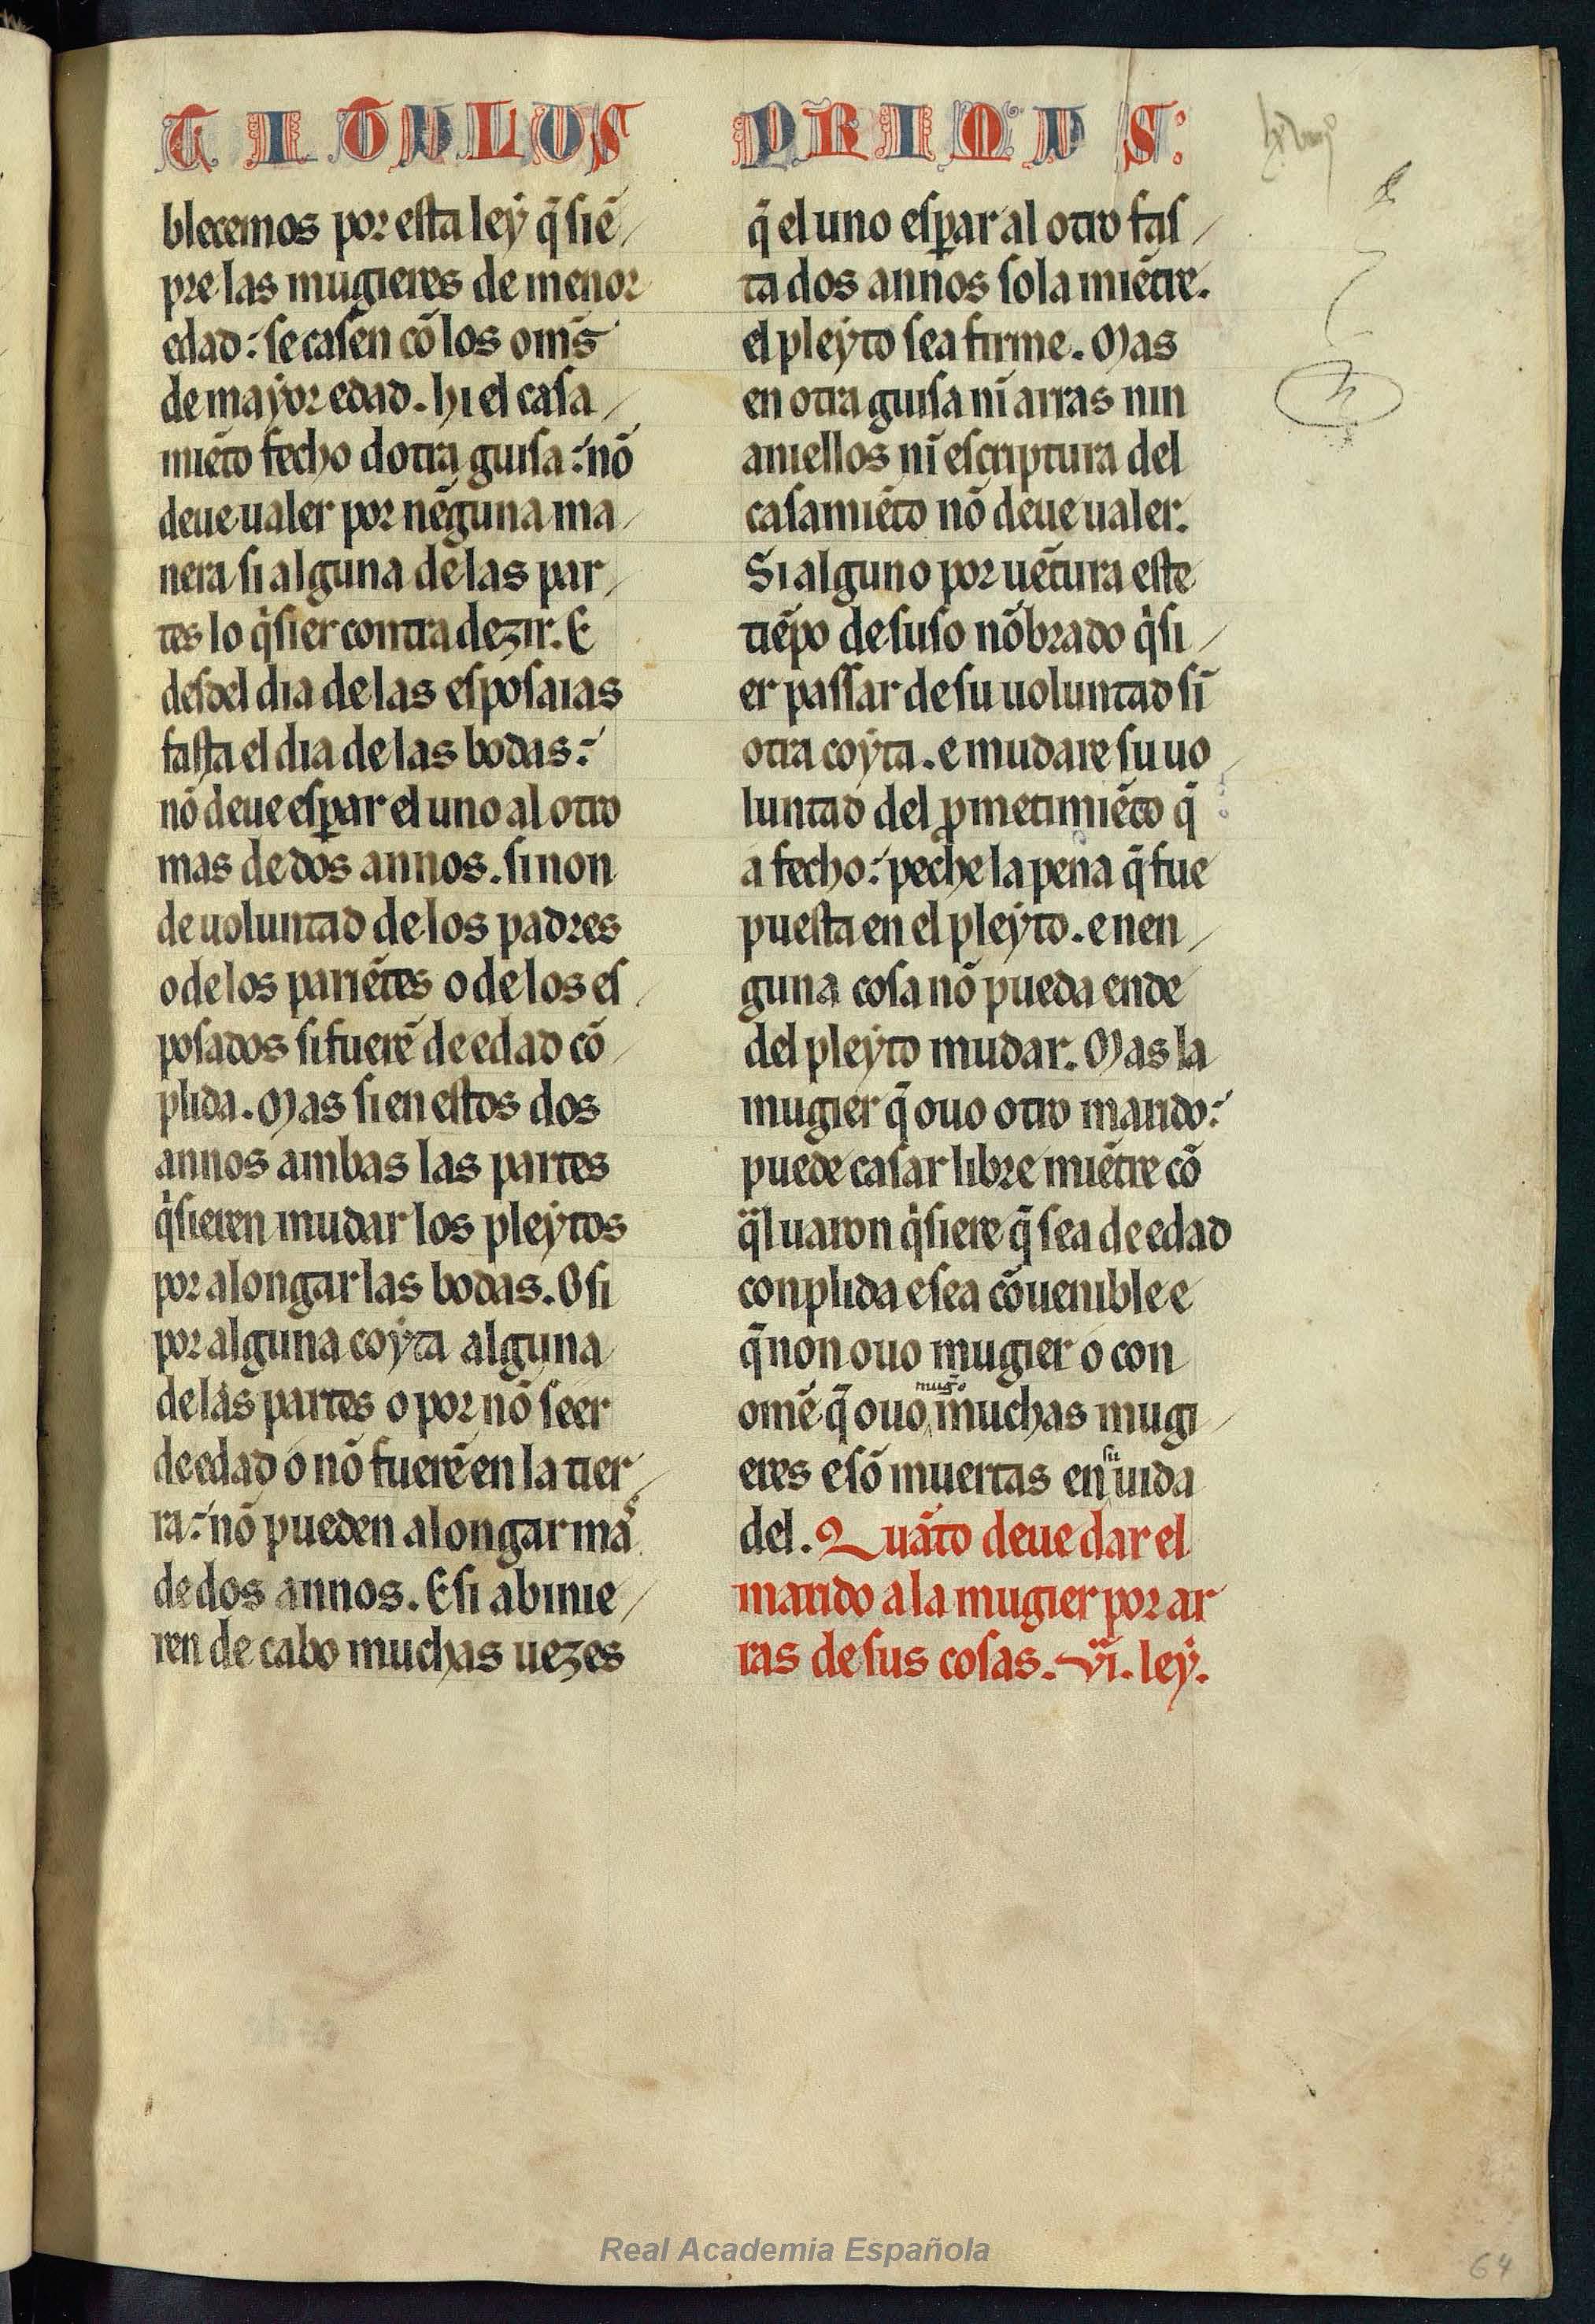 TITULUS PRIMUS:
blecemos por esta ley q̃ siẽ/
pre las mugieres de menor
edad: se casen cõ los om̃s
de mayor edad. hi el casa/
miẽto fecho dotra guisa: nõ
deue ualer por nẽguna ma/
nera si alguna de las par/
tes lo q̇sier contra dezir. E
desdel dia de las esposaias
fasta el dia de las bodas:
nõ deue esꝑar el uno al otro
mas de dos annos. si non
de uoluntad de los padres
o de los pariẽtes o de los es/
posados si fuerẽ de edad cõ/
plida. Mas si en estos dos
annos ambas las partes
q̇sieren mudar los pleytos
por alongar las bodas. O si
por alguna coyta alguna
de las partes o por nõ seer
de edad o nõ fuerẽ en la tier/
ra: nõ pueden alongar mas
de dos annos. E si abinie/
ren de cabo muchas uezes
q̃ el uno esꝑar al otro fas/
ta dos annos sola miẽtre.
el pleyto sea firme. Mas
en otra guisa nĩ arras nin
aniellos nĩ escriptura del
casamiẽto nõ deue ualer.
Si alguno por uẽtura este
tiẽpo de suso nõbrado q̇si/
er passar de su uoluntad sĩ
otra coyta. e mudare su uo/
luntad del ꝓmetimiẽto q̃
a fecho: peche la pena q̃ fue
puesta en el pleyto. e nen/
guna cosa nõ pueda ende
del pleyto mudar. Mas la
mugier q̃ ouo otro marido:
puede casar libre miẽtre cõ
q̃l uaron q̇siere q̃ sea de edad
conplida e sea cõuenible e
q̃ non ouo mugier o con
omẽ q̃ ouo mug̃ o muchas mugi/
eres e sõ muertas en su uida
del. Quãto deue dar el
marido a la mugier por ar
ras de sus cosas. vi. ley.
Real Academia Española
64